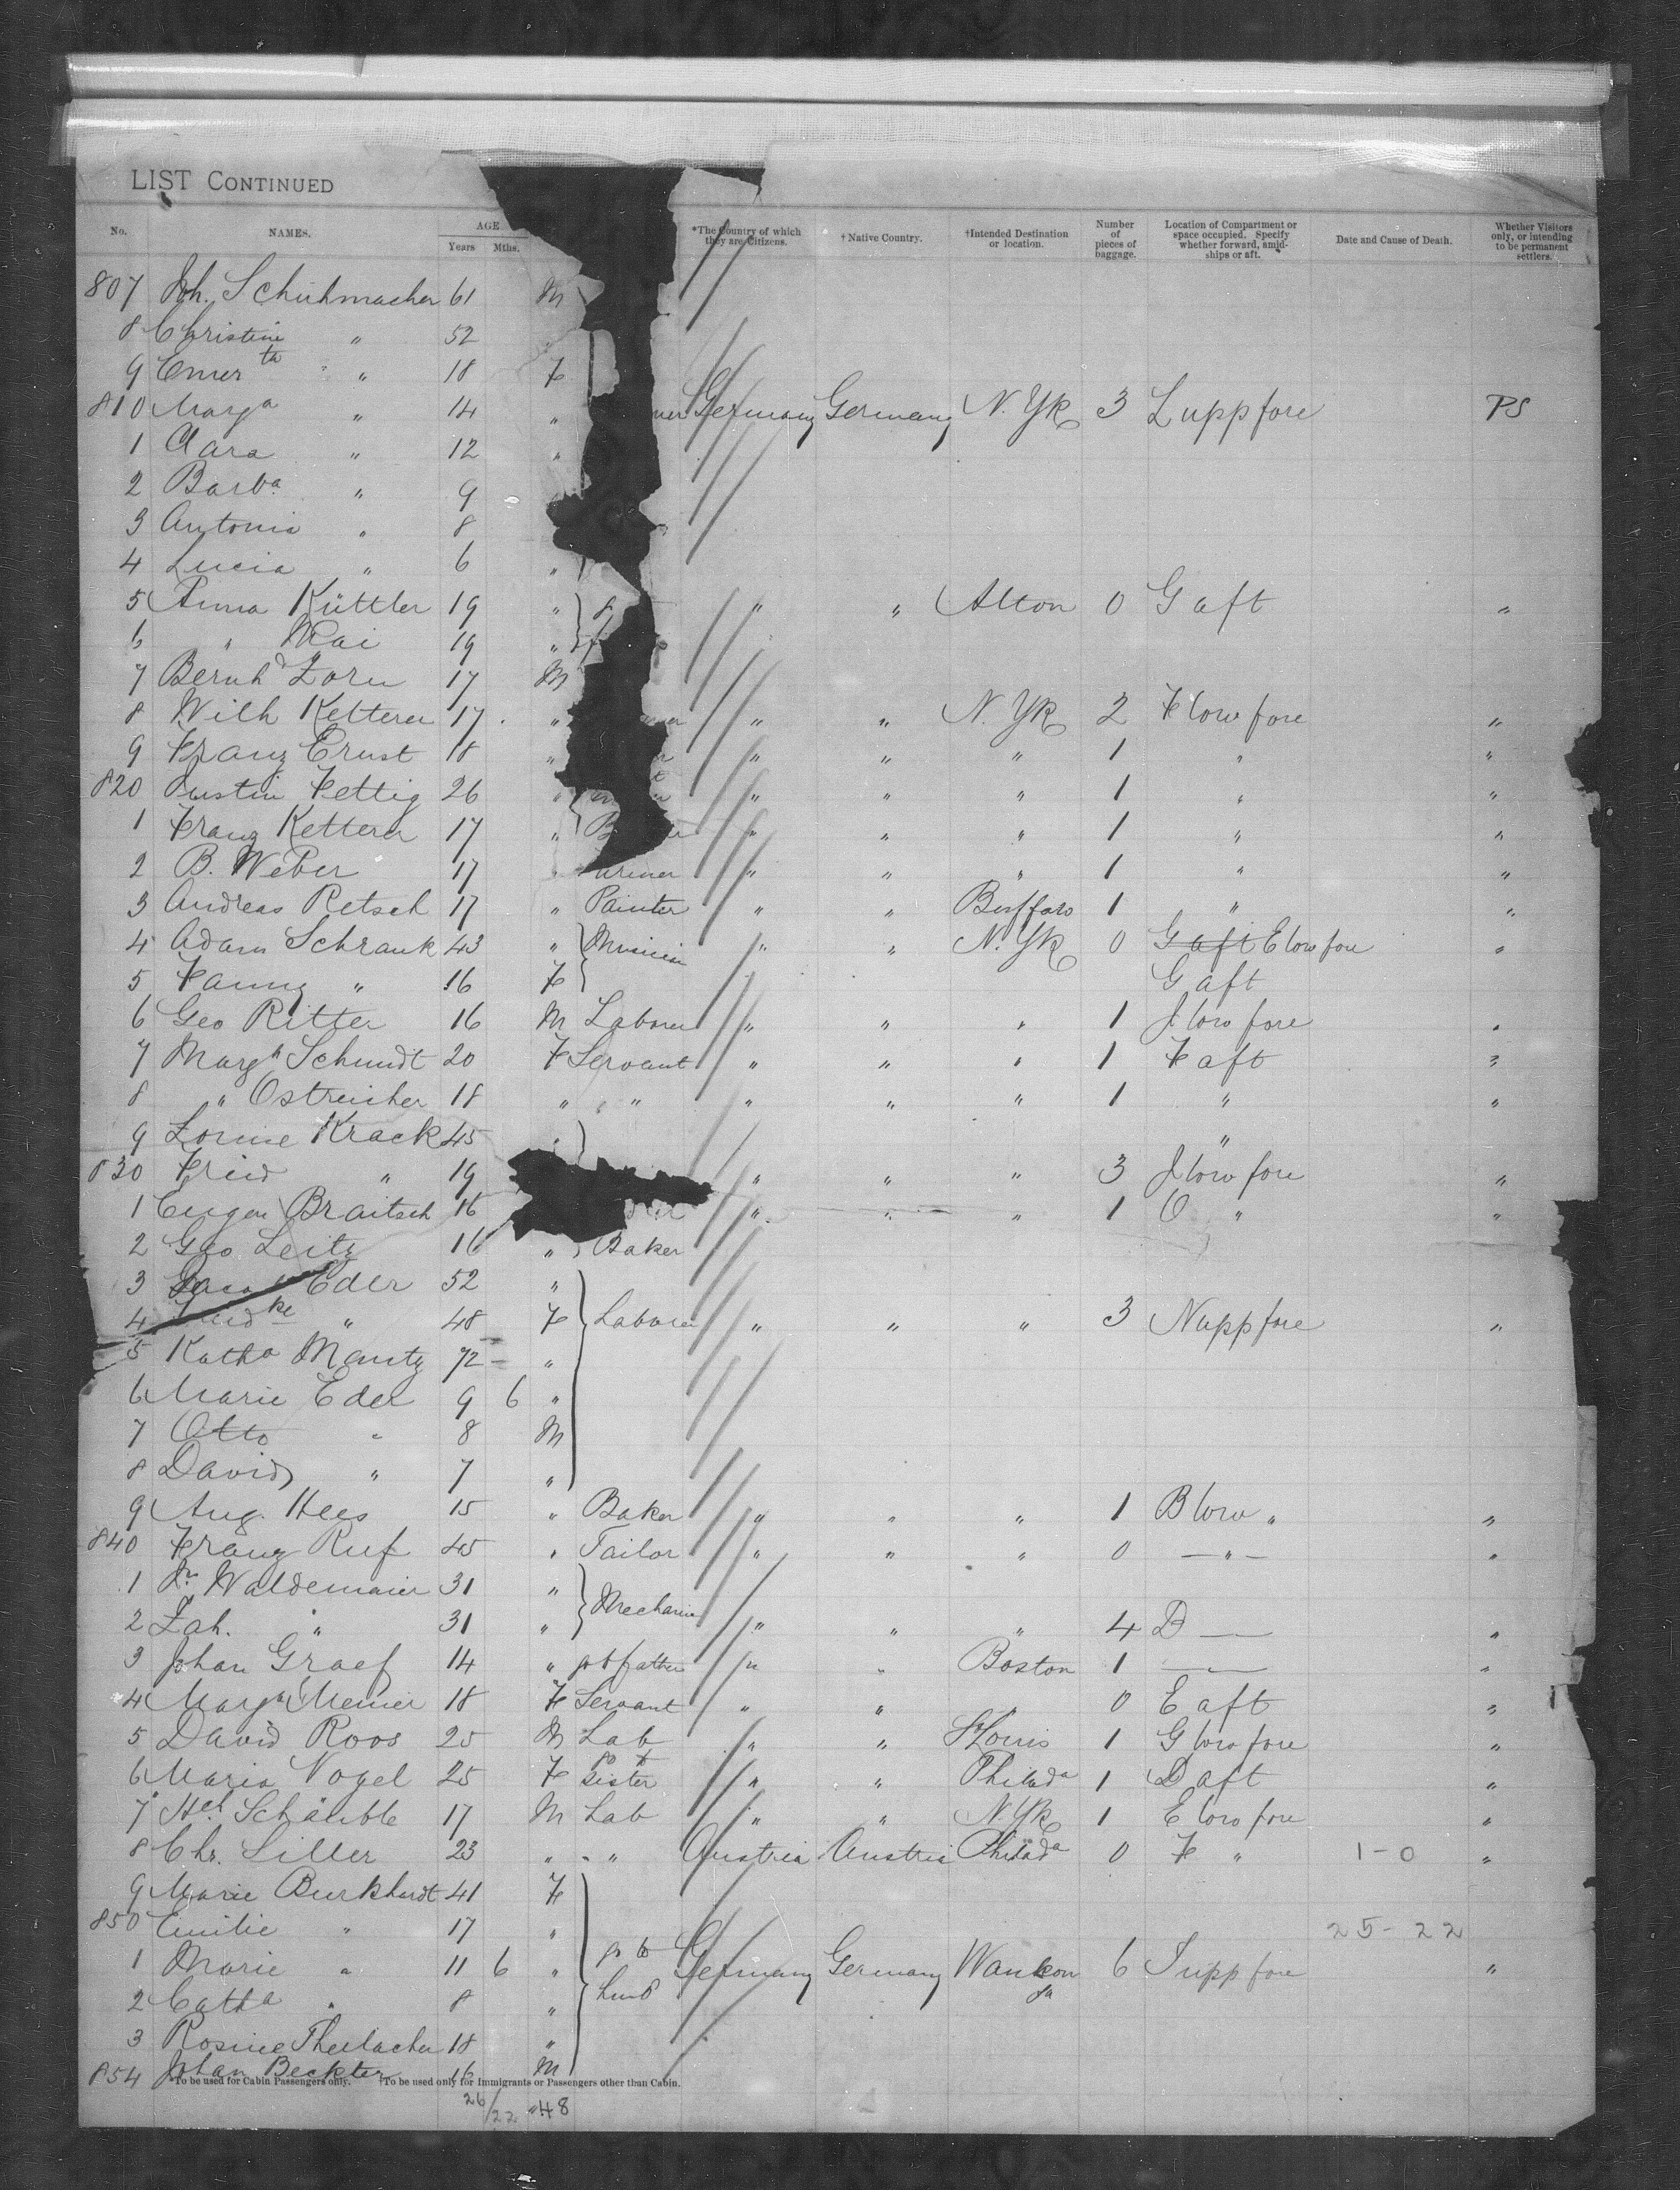 LIST CONTINUED
No. NAMES. AGE Years Mths. *The Country of which they are Citizens. †Native Country. †Intended Destination or location. Number of pieces of baggage. Location of Compartment or space occupied. Specify whether forward, amidships or aft. Date and Cause of Death. Whether Visitors only, or intending to be permanent settlers.
807 Joh. Schuhmacher 61 M
8 Christine " 52
9 " 18 F
810 Marga " 14 " Germany Germany N.Yk 3 L upp fore PS
1 Clara " 12 "
2 Barba " 9
3 Antonia " 8
4 Lucia " 6 "
5 Anna Küttler 19 " " " Alton 0 G aft "
6 " Mai 19 "
7 Bernhd Zorn 17 M
8 Wilh Ketterer 17 " " " N.Yk 2 F low fore "
9 Franz Ernst 18 " " " " 1 " "
820 Justin Fettig 26 " " " " 1 " "
1 Franz Ketterer 17 " " " " 1 " "
2 B. Weber 17 " " " " 1 " "
3 Andreas Retsch 17 " Painter " " Buffalo 1 " "
4 Adam Schrank 43 " Musician " " N.Yk 0 G aft E low fore "
5 Fanny " 16 F G aft
6 Geo Ritter 16 M Laborer " " " 1 J low fore "
7 Margh Schmidt 20 F Servant " " " 1 F aft "
8 " Ostreicher 18 " " " " " 1 " "
9 Louise Krack 45 " "
830 Fried " 19 " " " 3 J low fore "
1 Eugen Braitsch 16 " " " 1 O " "
2 Geo Leitz 16 " Baker
3 Eder 52 "
4 " 48 F Laborer " " " 3 N upp fore "
5 Katha Mantz 72 "
6 Marie Eder 9 6 "
7 Otto " 8 M
8 David " 7 "
9 Aug. Hees 15 " Baker " " " 1 B low " "
840 Franz Ruf 45 " Tailor " " " 0 — " — "
1 Waldemaier 31 "
2 " 31 " Mechanic " " " 4 D — "
3 Johan Graef 14 " " " Boston 1 — "
4 Marga Menier 18 F Servant " " 0 E aft "
5 David Roos 25 M Lab " " St Louis 1 G low fore "
6 Maria Vogel 25 F sister " " Philada 1 D aft "
7 Schäuble 17 M Lab " " N.Yk 1 E low fore "
8 Chr. Siller 23 " " Austria Austria Philada 0 F " 1-0 "
9 Marie Burkhardt 41 F
850 Emilie " 17 " 25-22
1 Marie " 11 6 " Germany Germany 6 J upp fore "
2 Catha " 8 "
3 Rosine 18 "
854 Johan Beckter 16 M
*To be used for Cabin Passengers only. †To be used only for Immigrants or Passengers other than Cabin.
26/22 "48